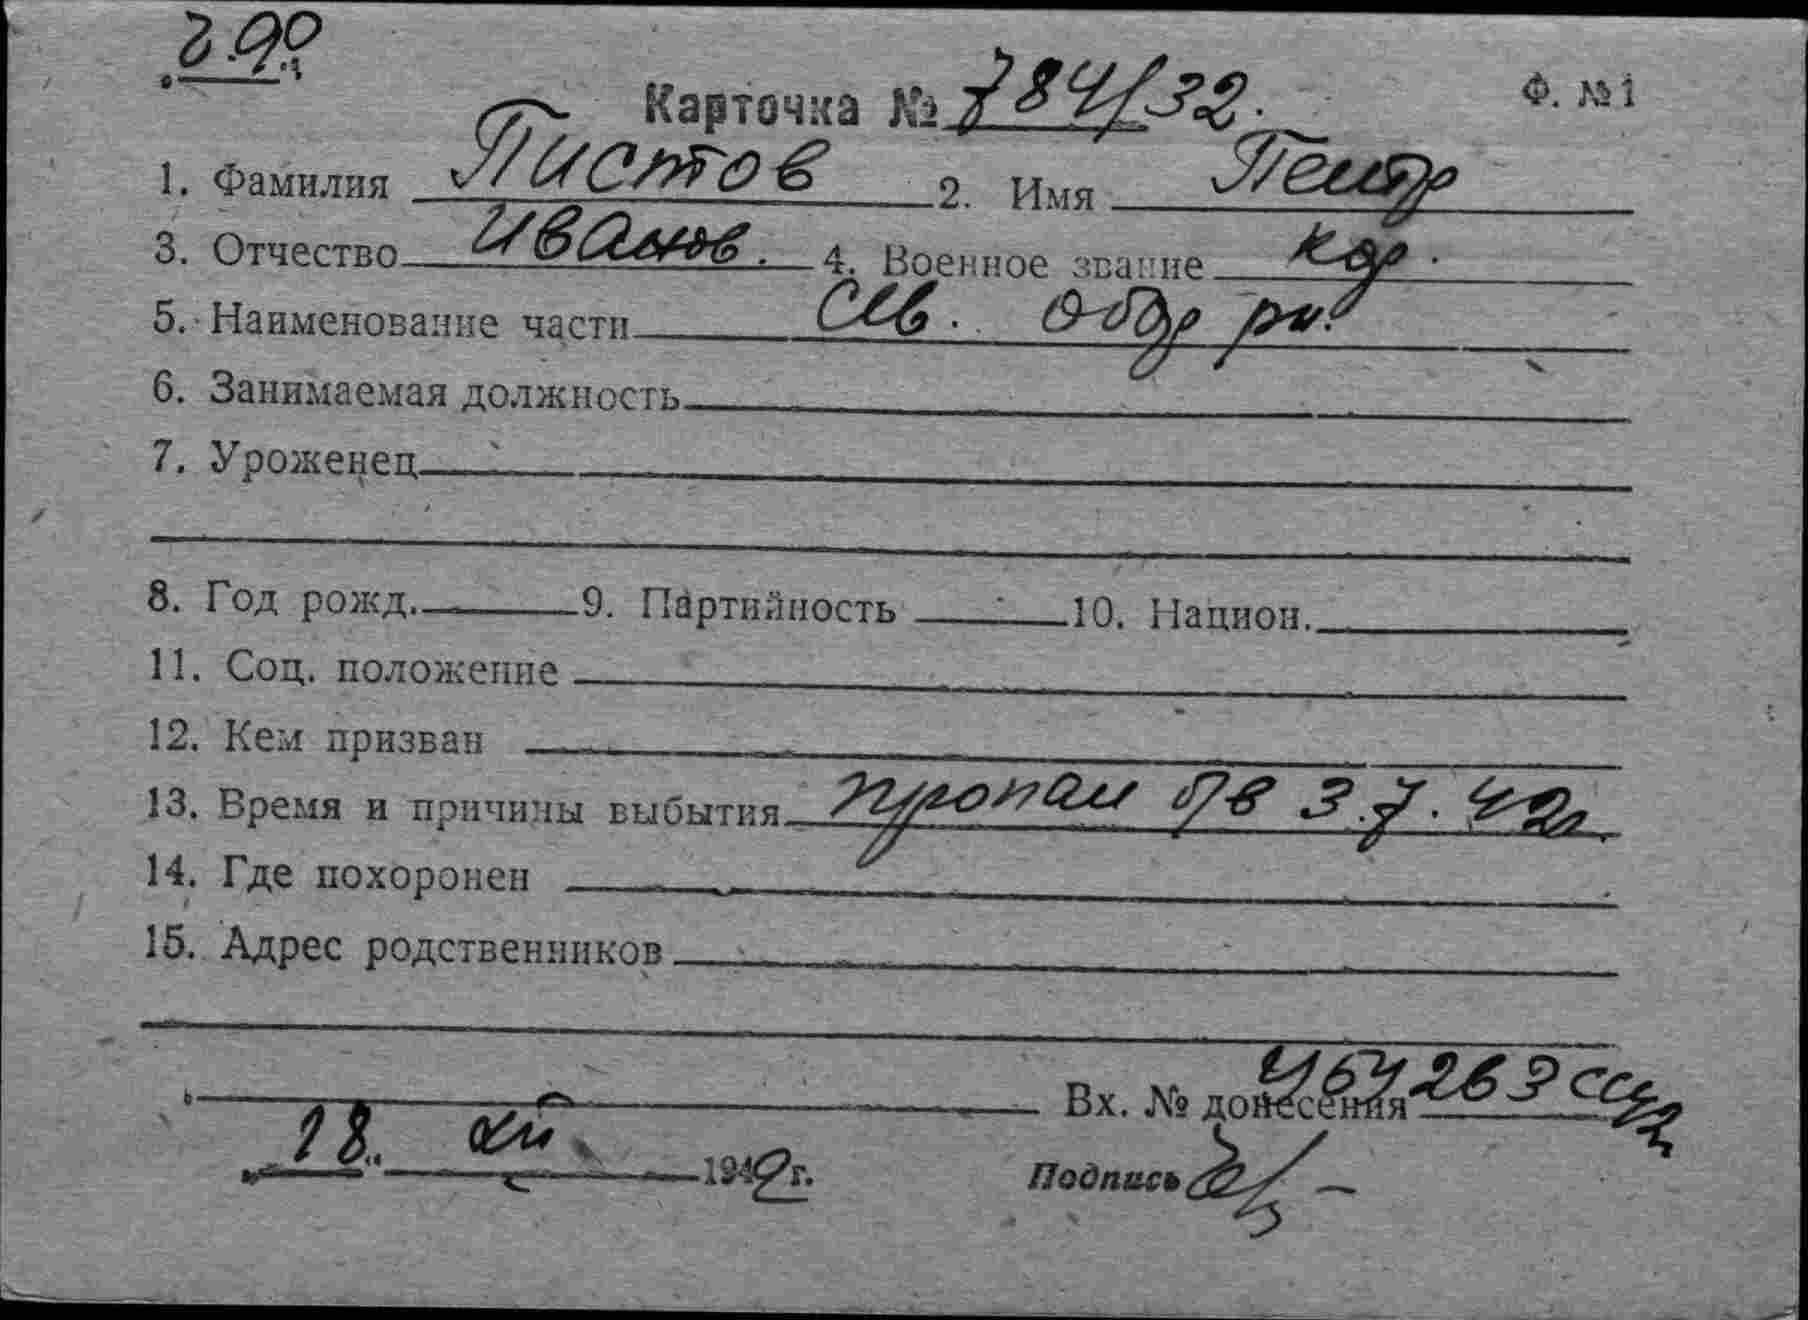 Карточка № 784/32. Ф. №1
1. Фамилия Пистов 2. Имя Петр
3. Отчество Иванов. 4. Военное звание
5. Наименование части
6. Занимаемая должность
7. Уроженец
8. Год рожд. 9. Партийность 10. Национ.
11. Соц. положение
12. Кем призван
13. Время и причины выбытия пропал бв 3.7.42г.
14. Где похоронен
15. Адрес родственников
Вх. № донесения
18. 1942г. Подпись